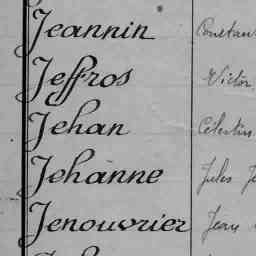 Jeannin Constan
Jeffros Victor
Jehan Célestin
Jehanne Jules
Jenouvrier Jean